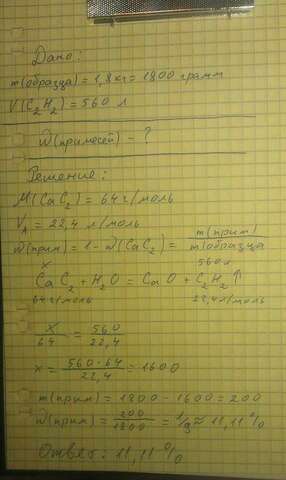 Дано:
m(образца) = 1,8 кг = 1800 грамм
V(C₂H₂) = 560 л
W(примесей) - ?
Решение:
M(CaC₂) = 64 г/моль
V = 22,4 л/моль
W(прим) = 1 - W(CaC₂) = m(прим)/m(образца
x 560 л
CaC₂ + H₂O = CaO + C₂H₂↑
64 г/моль 22,4 л/моль
x/64 = 560/22,4
x = 560·64/22,4 = 1600
m(прим) = 1800 - 1600 = 200
W(прим) = 200/1800 = 1/9 ≈ 11,11%
Ответ: 11,11%